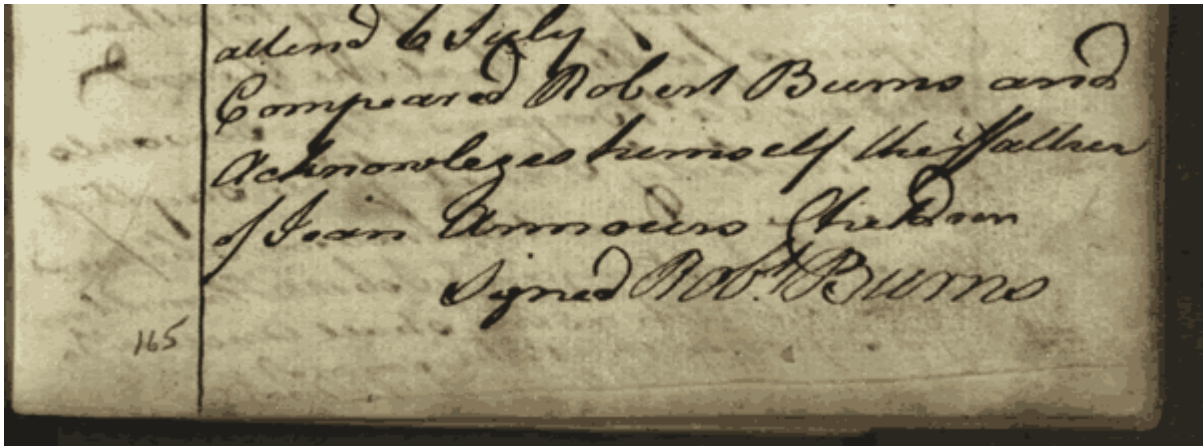 attend 6 July
Compeared Robert Burns and
Acknowleges himself the ffather
of Jean Armours Children
Signed Robt. Burns
165